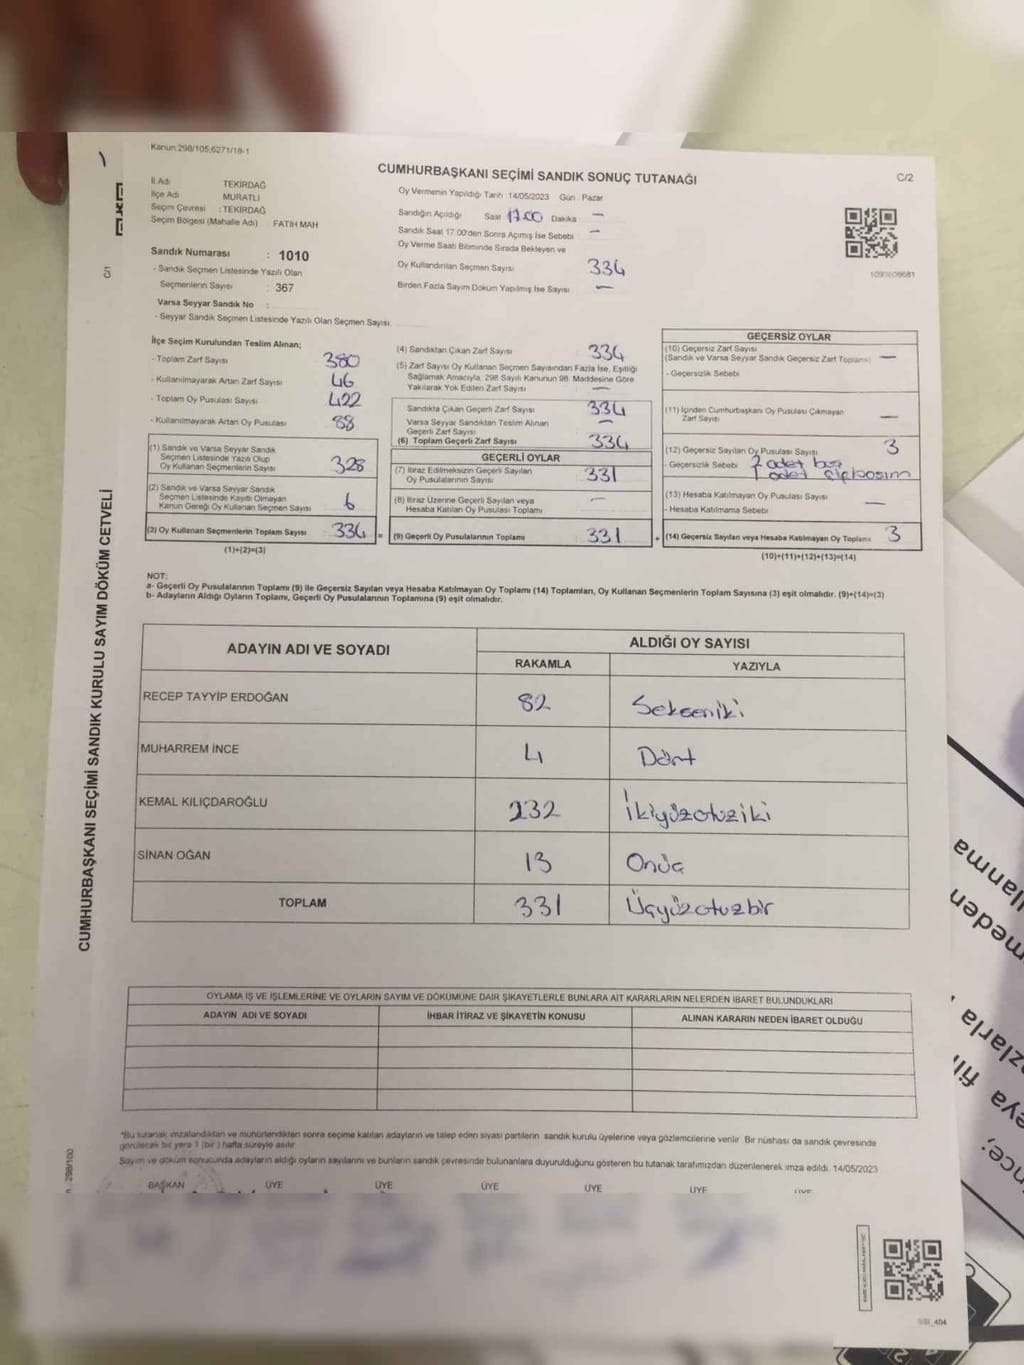 Kanun 298/105,6271/18-1
CUMHURBAŞKANI SEÇİMİ SANDIK SONUÇ TUTANAĞI
C/2
İl Adı TEKİRDAĞ
İlçe Adı MURATLI
Seçim Çevresi : TEKİRDAĞ
Seçim Bölgesi (Mahalle Adı) FATİH MAH
Oy Vermenin Yapıldığı Tarih :14/05/2023 Gün : Pazar
Sandığın Açıldığı Saat 17.00 Dakika —
Sandık Saat 17.00'den Sonra Açımış İse Sebebi —
Oy Verme Saati Bitiminde Sırada Bekleyen ve
Oy Kullandırılan Seçmen Sayısı 334
Birden Fazla Sayım Döküm Yapılmış İse Sayısı —
Sandık Numarası : 1010
- Sandık Seçmen Listesinde Yazılı Olan
Seçmenlerin Sayısı : 367
Varsa Seyyar Sandık No :
- Seyyar Sandık Seçmen Listesinde Yazılı Olan Seçmen Sayısı
İlçe Seçim Kurulundan Teslim Alınan;
- Toplam Zarf Sayısı 380
- Kullanılmayarak Artan Zarf Sayısı 46
- Toplam Oy Pusulası Sayısı 422
- Kullanılmayarak Artan Oy Pusulası 88
(1) Sandık ve Varsa Seyyar Sandık
Seçmen Listesinde Yazılı Olup
Oy Kullanan Seçmenlerin Sayısı 328
(2) Sandık ve Varsa Seyyar Sandık
Seçmen Listesinde Kayıtlı Olmayan
Kanun Gereği Oy Kullanan Seçmen Sayısı 6
(3) Oy Kullanan Seçmenlerin Toplam Sayısı 334 =
(1)+(2)=(3)
(4) Sandıktan Çıkan Zarf Sayısı 334
(5) Zarf Sayısı Oy Kullanan Seçmen Sayısından Fazla İse, Eşitliği
Sağlamak Amacıyla, 298 Sayılı Kanunun 98. Maddesine Göre
Yakılarak Yok Edilen Zarf Sayısı —
Sandıkta Çıkan Geçerli Zarf Sayısı 334
Varsa Seyyar Sandıktan Teslim Alınan
Geçerli Zarf Sayısı —
(6) Toplam Geçerli Zarf Sayısı 334
GEÇERLİ OYLAR
(7) İtiraz Edilmeksizin Geçerli Sayılan
Oy Pusulalarının Sayısı 331
(8) İtiraz Üzerine Geçerli Sayılan veya
Hesaba Katılan Oy Pusulası Toplamı —
(9) Geçerli Oy Pusulalarının Toplamı 331 +
GEÇERSİZ OYLAR
(10) Geçersiz Zarf Sayısı
(Sandık ve Varsa Seyyar Sandık Geçersiz Zarf Toplamı) —
- Geçersizlik Sebebi
(11) İçinden Cumhurbaşkanı Oy Pusulası Çıkmayan
Zarf Sayısı —
(12) Geçersiz Sayılan Oy Pusulası Sayısı 3
- Geçersizlik Sebebi 2 adet boş
1 adet çiftbasım
(13) Hesaba Katılmayan Oy Pusulası Sayısı —
- Hesaba Katılmama Sebebi
(14) Geçersiz Sayılan veya Hesaba Katılmayan Oy Toplamı 3
(10)+(11)+(12)+(13)=(14)
NOT:
a- Geçerli Oy Pusulalarının Toplamı (9) ile Geçersiz Sayılan veya Hesaba Katılmayan Oy Toplamı (14) Toplamları, Oy Kullanan Seçmenlerin Toplam Sayısına (3) eşit olmalıdır. (9)+(14)=(3)
b- Adayların Aldığı Oyların Toplamı, Geçerli Oy Pusulalarının Toplamına (9) eşit olmalıdır.
ADAYIN ADI VE SOYADI ALDIĞI OY SAYISI
RAKAMLA YAZIYLA
RECEP TAYYİP ERDOĞAN 82 Sekseniki
MUHARREM İNCE 4 Dört
KEMAL KILIÇDAROĞLU 232 İkiyüzotuziki
SİNAN OĞAN 13 Onüç
TOPLAM 331 Üçyüzotuzbir
OYLAMA İŞ VE İŞLEMLERİNE VE OYLARIN SAYIM VE DÖKÜMÜNE DAİR ŞİKAYETLERLE BUNLARA AİT KARARLARIN NELERDEN İBARET BULUNDUKLARI
ADAYIN ADI VE SOYADI İHBAR İTİRAZ VE ŞİKAYETİN KONUSU ALINAN KARARIN NEDEN İBARET OLDUĞU
*Bu tutanak imzalandıktan ve mühürlendikten sonra seçime katılan adayların ve talep eden siyasi partilerin sandık kurulu üyelerine veya gözlemcilerine verilir. Bir nüshası da sandık çevresinde
görülecek bir yere 1 (bir ) hafta süreyle asılır.
Sayım ve döküm sonucunda adayların aldığı oyların sayılarını ve bunların sandık çevresinde bulunanlara duyurulduğunu gösteren bu tutanak tarafımızdan düzenlenerek imza edildi. 14/05/2023
BAŞKAN ÜYE ÜYE ÜYE ÜYE ÜYE ÜYE
CUMHURBAŞKANI SEÇİMİ SANDIK KURULU SAYIM DÖKÜM CETVELİ
C/1